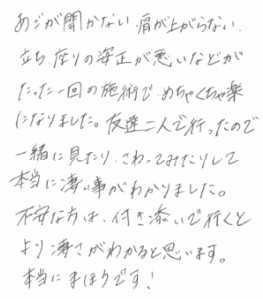 あごが開かない、肩が上がらない、
立ち、座りの姿正が悪いなどが
たった一回の施術で、めちゃくちゃ楽
になりました。友達二人で行ったので
一緒に見たり、さわってみたりして
本当に凄い事がわかりました。
不安な方は、付き添いで行くと
より凄さがわかると思います。
本当にまほうです!